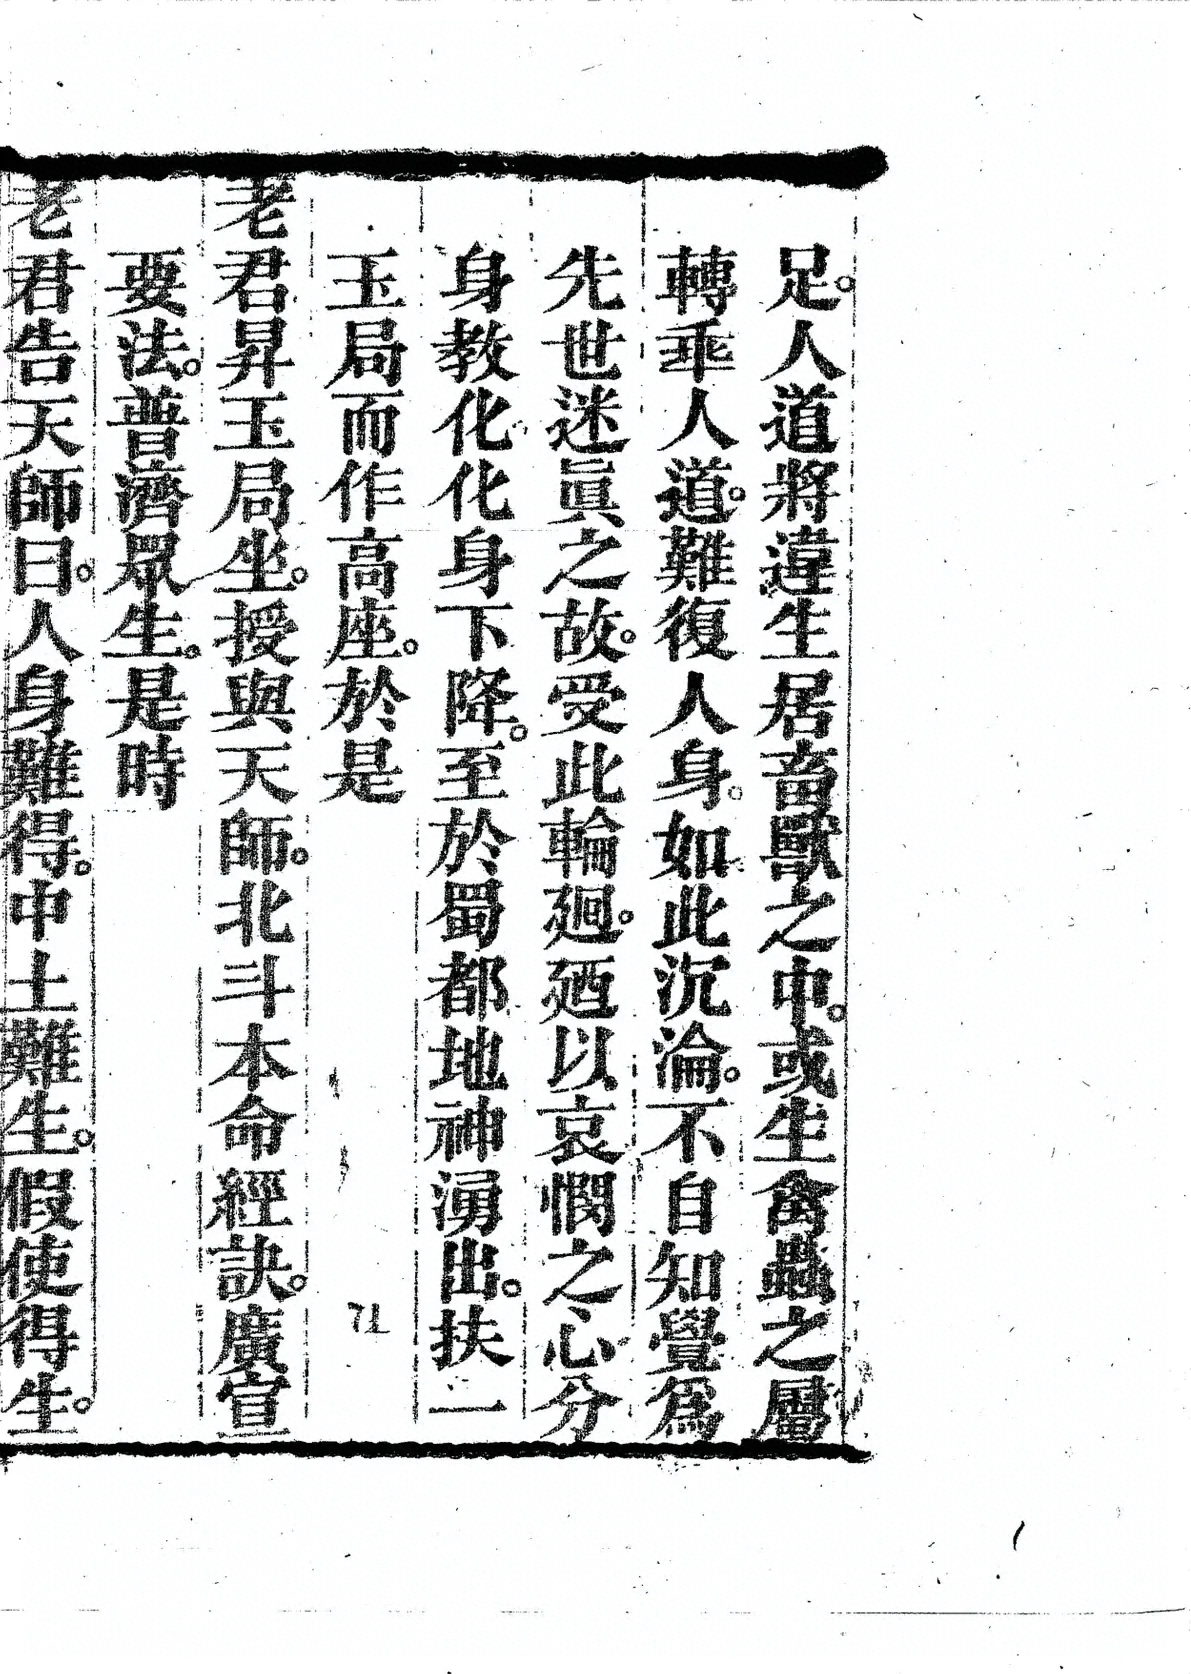 足。人道將違生居畜獸之中。或生禽蟲之屬
轉乖人道。難復人身。如此沉淪。不自知覺為
先世迷眞之故。受此輪廻。廼以哀憫之心分
身教化。化身下降。至於蜀都地神湧出。扶一
玉局而作高座。於是
老君昇玉局坐。授與天師。北斗本命經訣。廣宣
要法。普濟眾生。是時
老君告天師曰。人身難得。中土難生。假使得生。
71